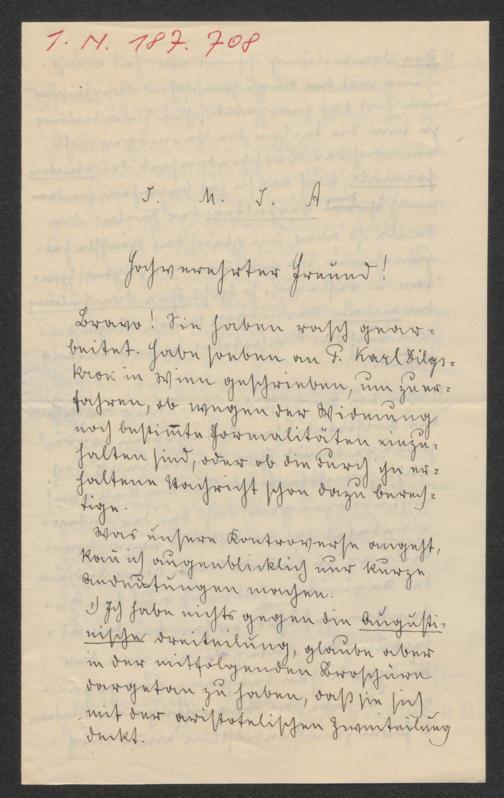 I. N. 187.708
J. M. J. A.
Hochverehrter Freund!
Bravo! Sie haben rasch gear-
beitet. Habe soeben an P. Karl Dilgs-
kron in Wien geschrieben, um zu er-
fahren, ob wegen der Widmung
noch bestim̅te Formalitäten einzu-
halten sind, oder ob die durch ihn er-
haltene Nachricht schon dazu berech-
tige.
Was unsere Kontroverse angeht,
kan̅ ich augenblicklich nur kurze
Andeutungen machen.
1) Ich habe nichts gegen die Augusti-
nische Dreiteilung, glaube aber
in der mitfolgenden Broschüre
dargetan zu haben, daß sie sich
mit der aristotelischen Zweiteilung
deckt.